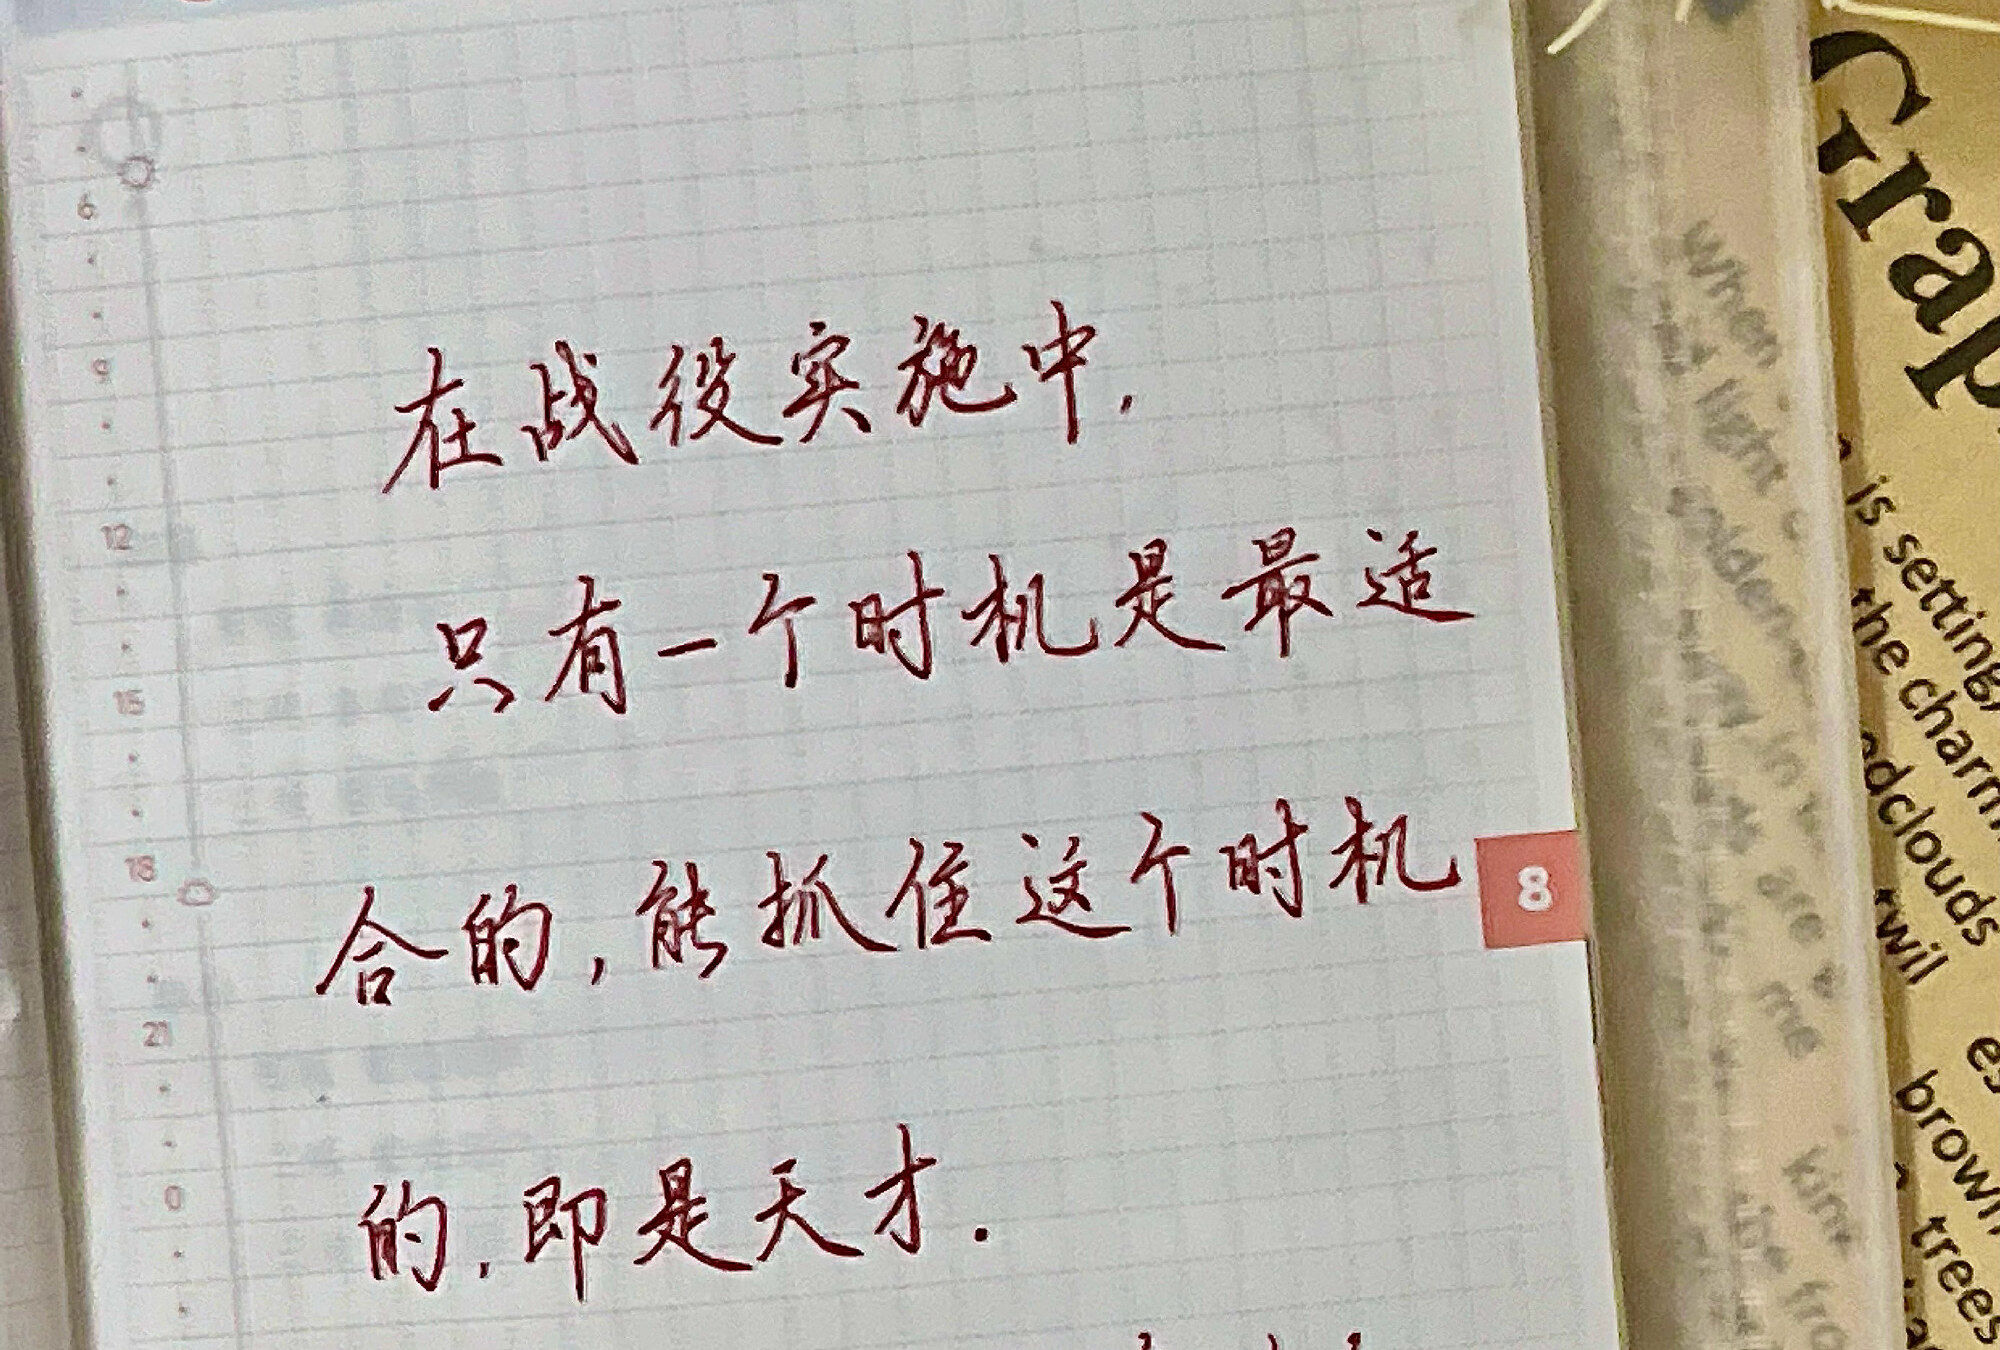 在战役实施中,
只有一个时机是最适
合的,能抓住这个时机
的,即是天才.
6
9
12
15
18
21
0
8
Grap
is setting,
the charm
edclouds
brown
trees
When
light
golden
are
me